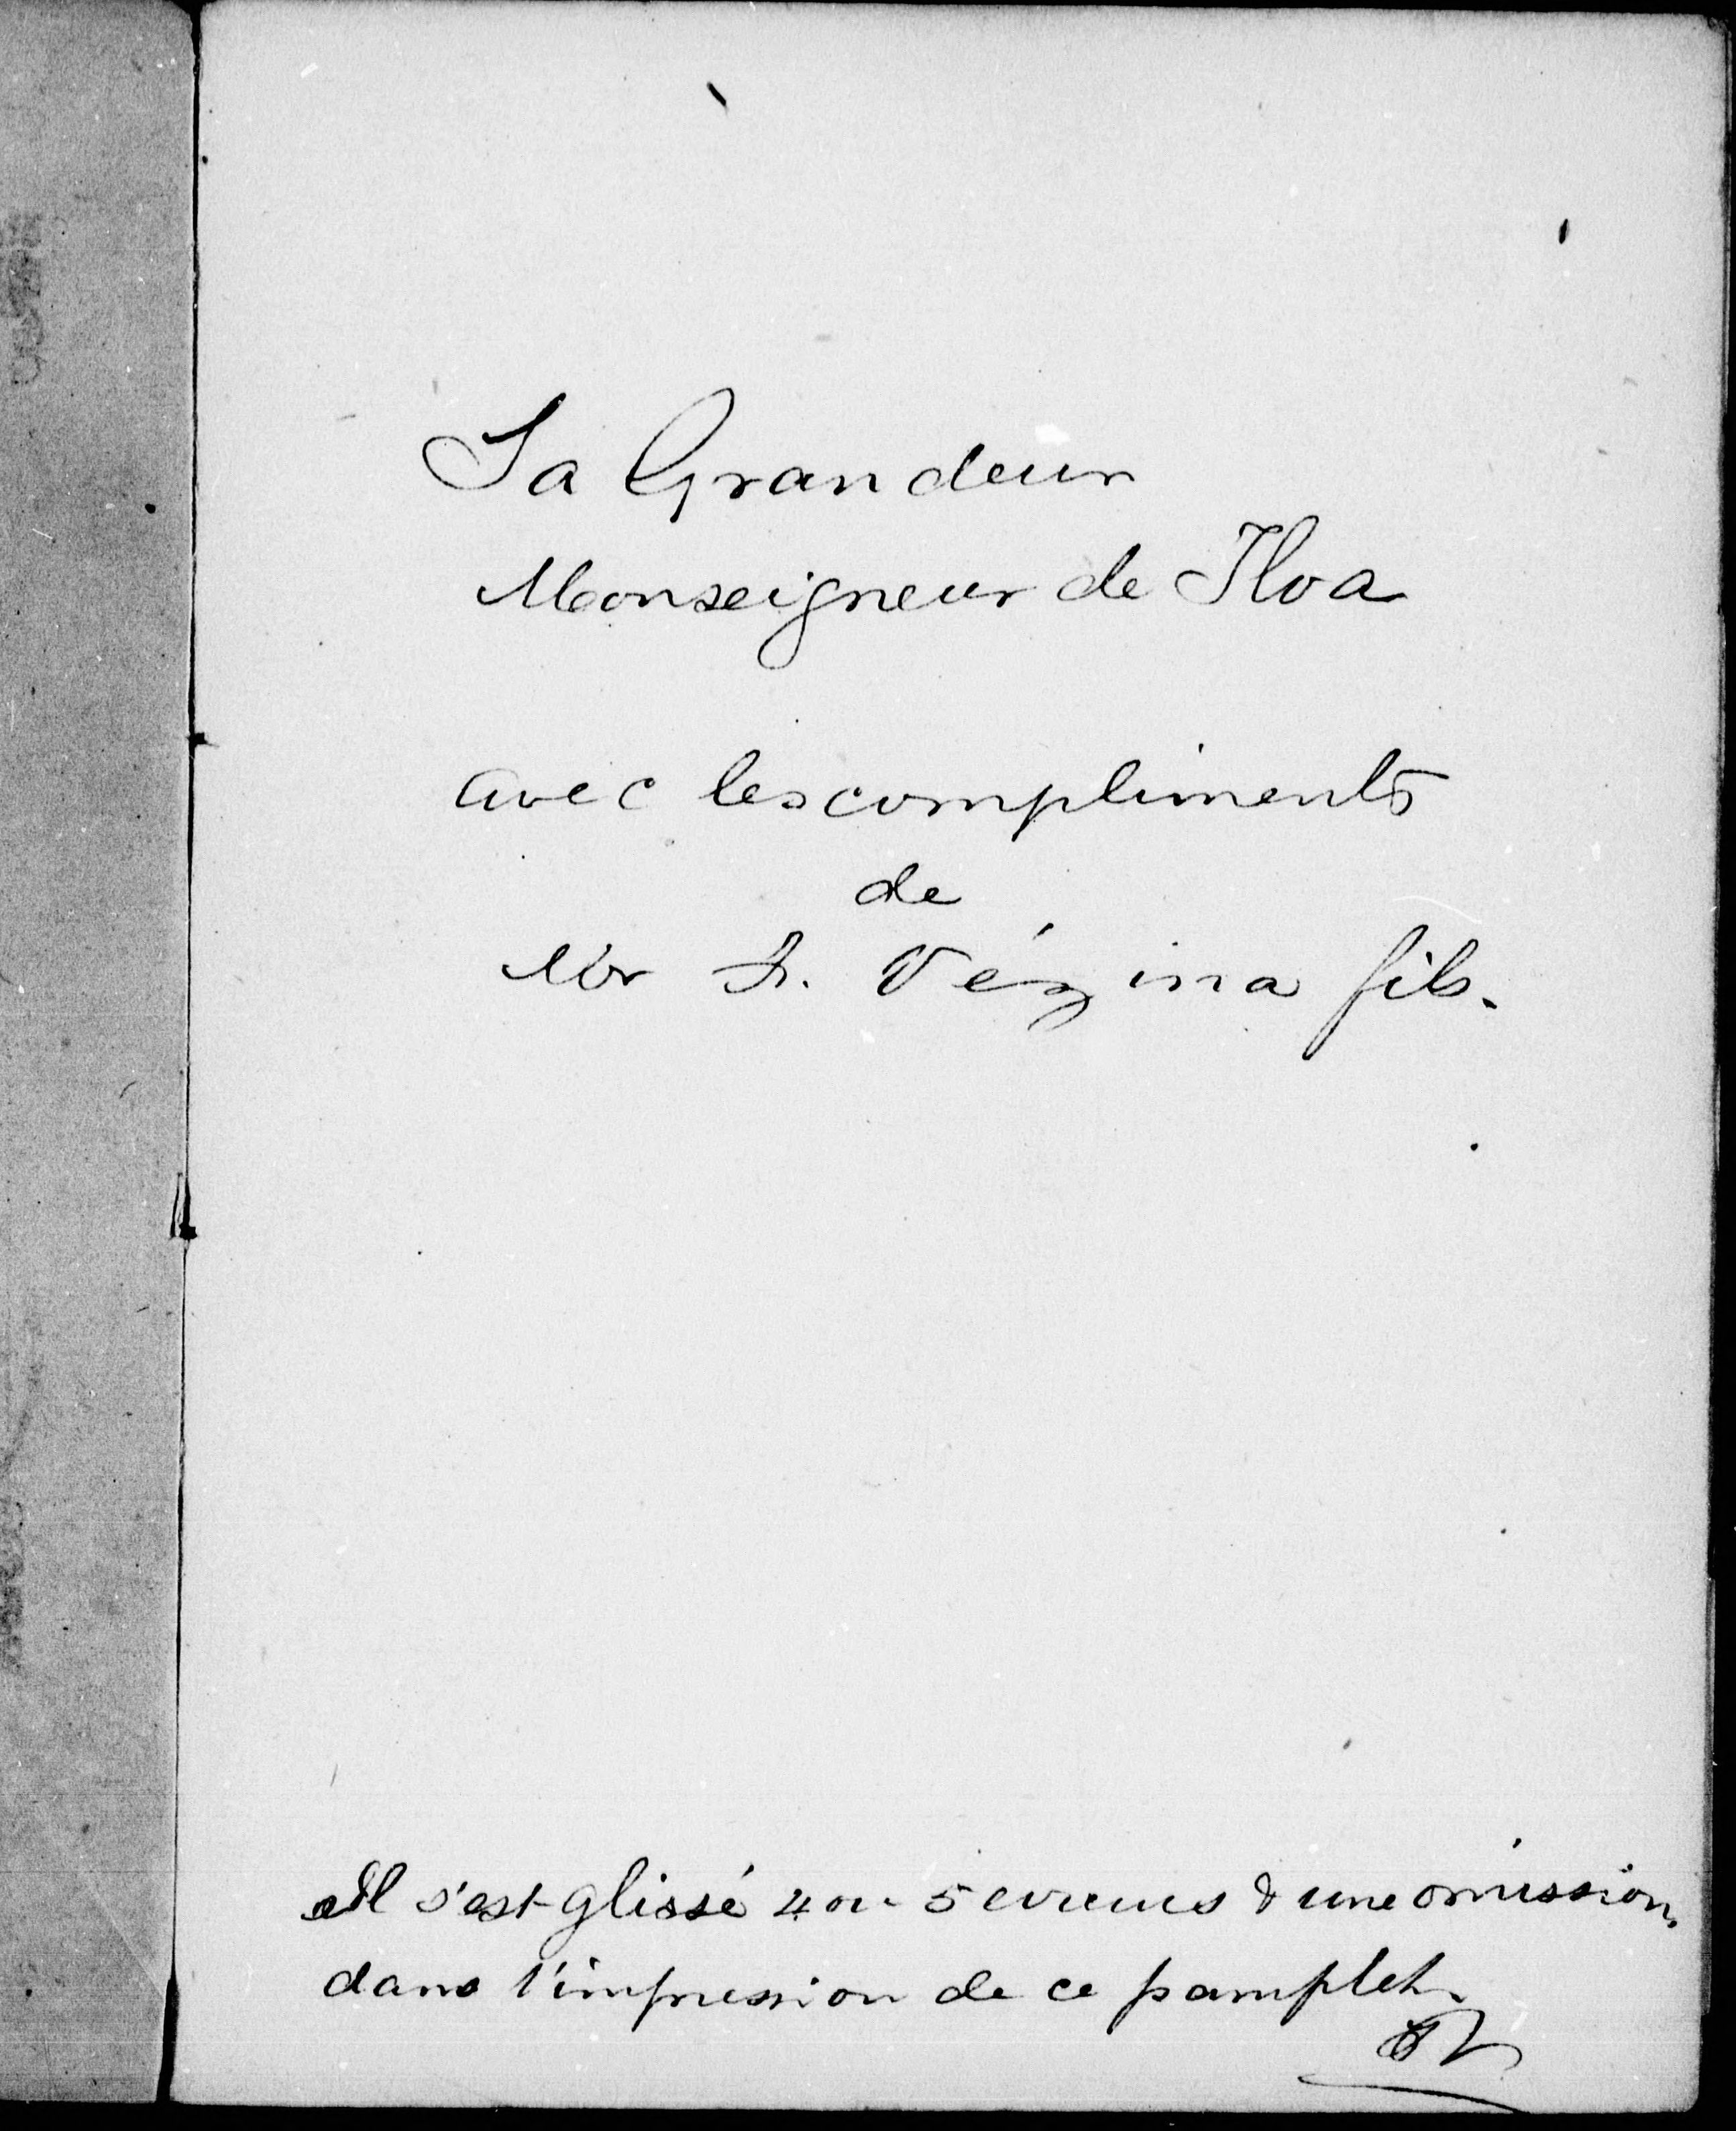 Sa Grandeur
Monseigneur de Tloa
avec les compliments
de
Mr F. Vézina fils.
Il s'est glissé 4 ou 5 erreurs & une omission
dans l'impression de ce pamplet.
FV